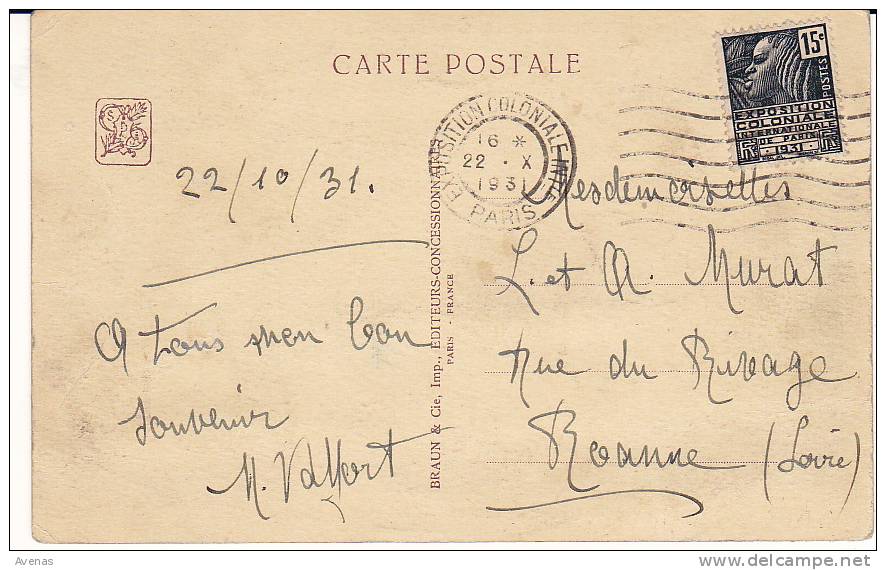 CARTE POSTALE
15c
POSTES
EXPOSITION
COLONIALE
INTERNATIONALE
DE PARIS
1931
EXPOSITION COLONIALE INTLE
16 *
22 · X
1931
PARIS
22/10/31.
A tous mon bon
souvenir
M. Valfort
BRAUN & Cie, Imp., EDITEURS-CONCESSIONNAIRES
PARIS - FRANCE
Mesdemoiselles
L. et A. Murat
Rue du Rivage
Roanne (Loire)
Avenas
delcampe.net